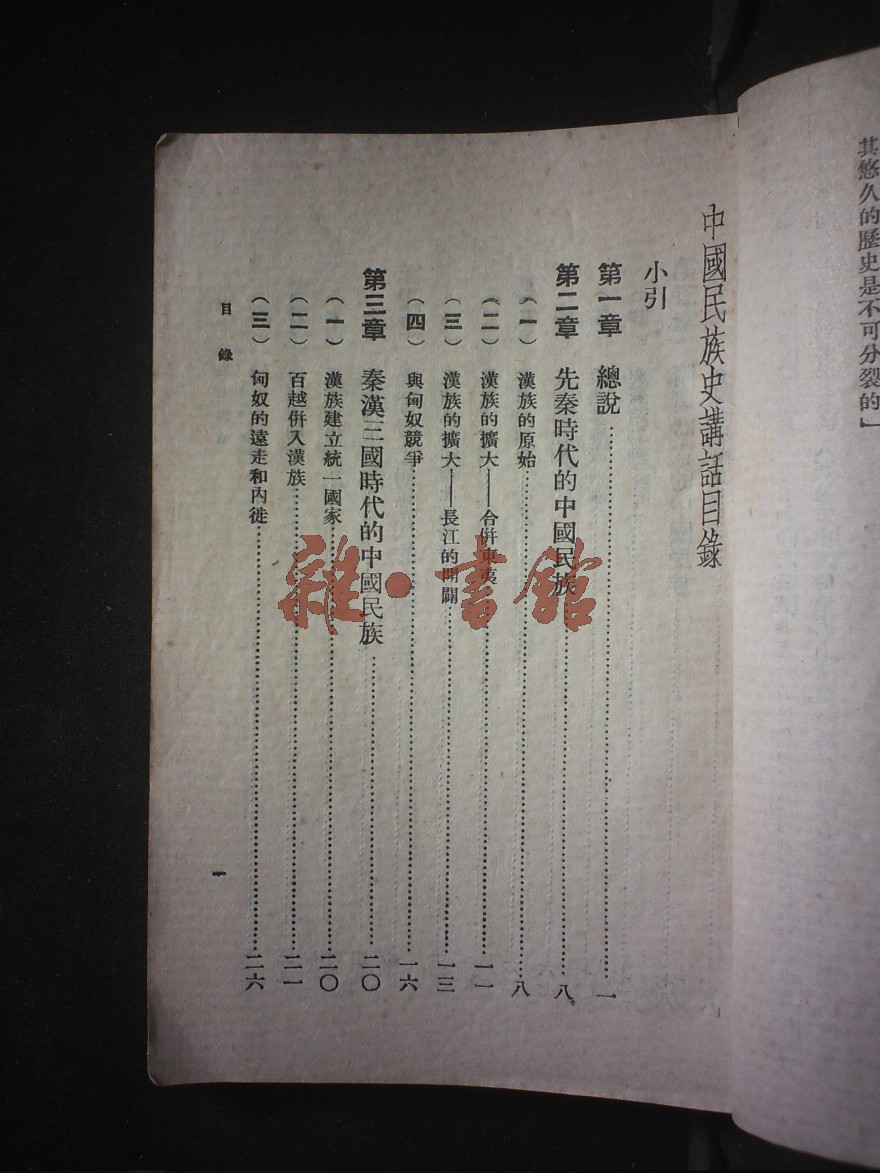 其悠久的歷史是不可分裂的」
中國民族史講話目錄
小引
第一章 總說……一
第二章 先秦時代的中國民族……八
(一) 漢族的原始……八
(二) 漢族的擴大——合併東夷……一一
(三) 漢族的擴大——長江的開闢……一三
(四) 與匈奴競爭……一六
第三章 秦漢三國時代的中國民族……二〇
(一) 漢族建立統一國家……二〇
(二) 百越併入漢族……二一
(三) 匈奴的遠走和內徙……二六
目錄
一
雜·書館